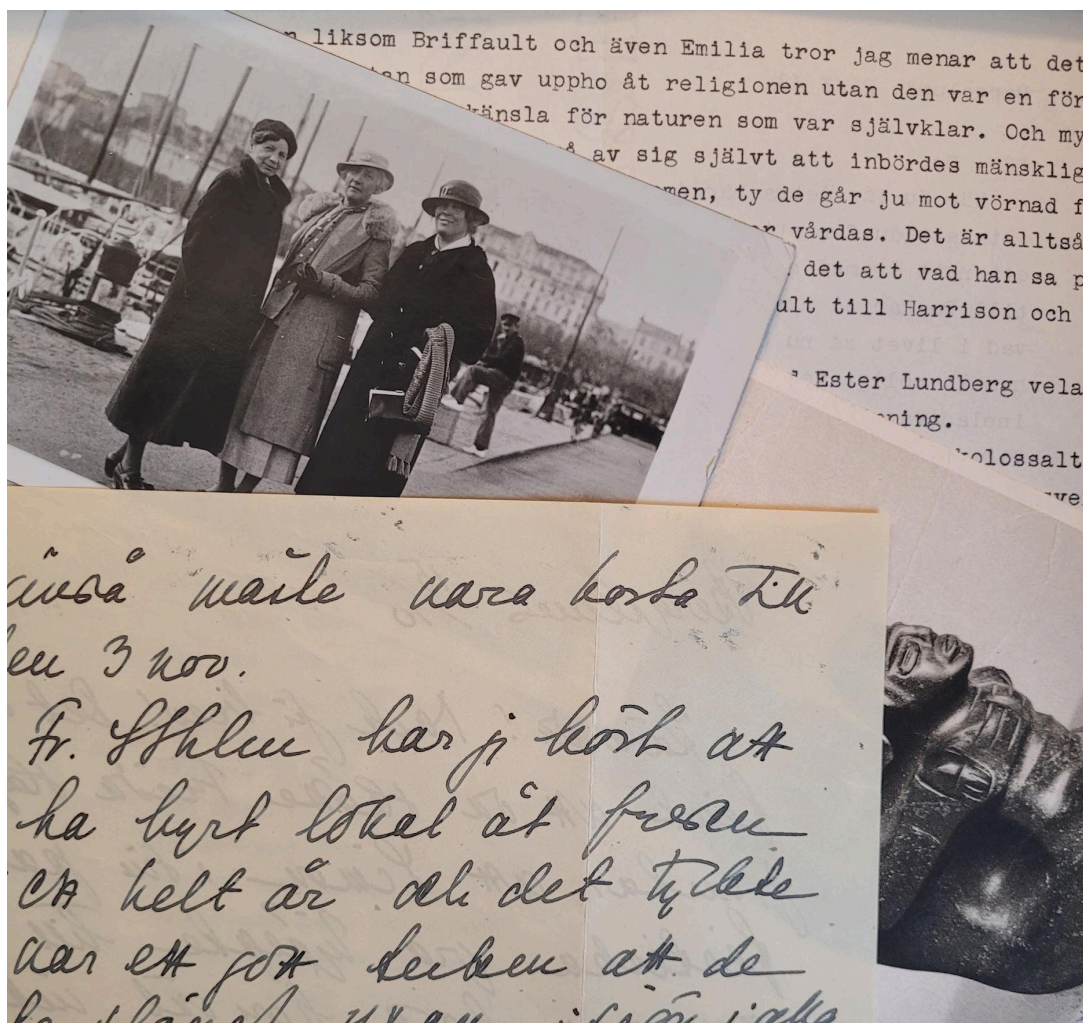 liksom Briffault och även Emilia tror jag menar att det
som gav uppho åt religionen utan den var en för
känsla för naturen som var självklar. Och my
av sig självt att inbördes mänsklig
men, ty de går ju mot vörnad f
vårdas. Det är alltså
det att vad han sa p
ult till Harrison och
Ester Lundberg vela
ning.
kolossalt
måste vara borta till
en 3 nov.
Fr. har jj hört att
ha hyrt lokal åt
ett helt år och det tyckte
var ett gott tecken att de